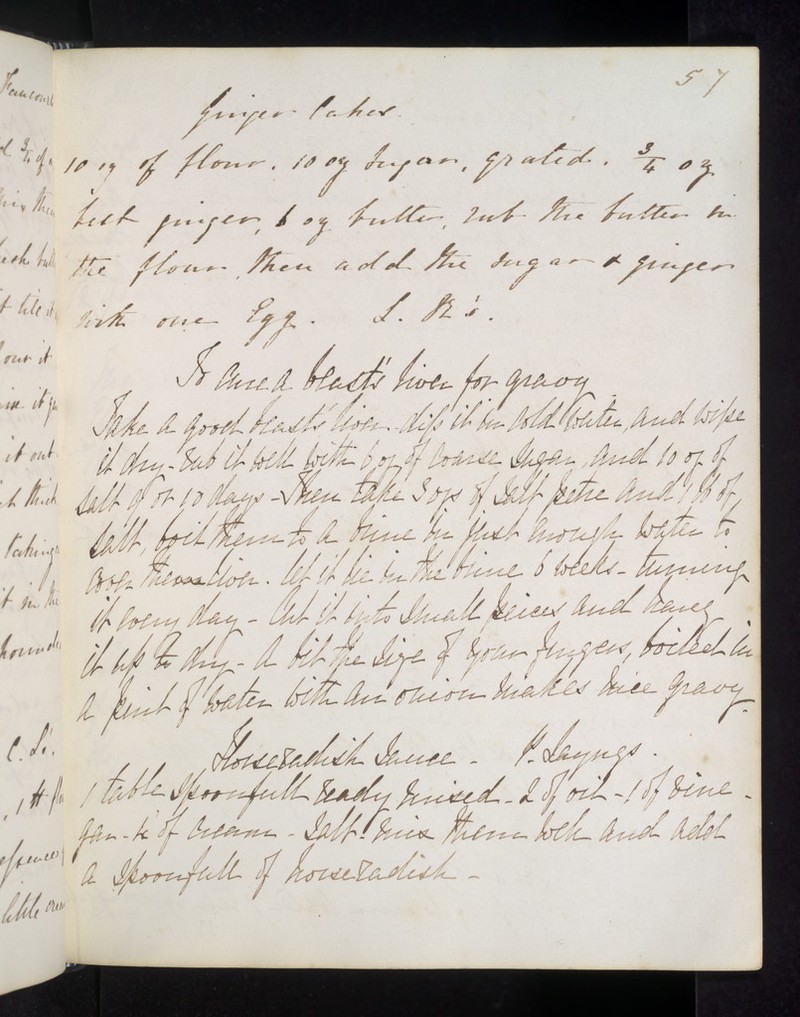 57
Ginger Cakes.
10 oz of flour. 10 oz sugar, grated. 3/4 oz
best ginger, 6 oz butter, rub the butter in
the flour, then add the sugar & ginger
with one Egg. L. R's.
To cure a beast's liver for gravy
Take a good beast's liver dip it in cold water, and wipe
it dry - rub it well with 6 oz of coarse sugar, and 10 oz of
salt 9 or 10 days - Then take 3 ozs of salt petre and 1 lb of
salt, boil them to a brine in just enough water to
cover the liver. let it lie in the brine 6 weeks - turning
it every day - Cut it into small peices and hang
it up to dry - A bit the size of your fingers, boiled in
a pint of water with an onion makes nice gravy.
Horseradish Sauce -
1 table spoonfull ready mixed - 2 of oil - 1 of vine-
gar - 4 of cream - Salt. mix them well and add
a spoonfull of horseradish -